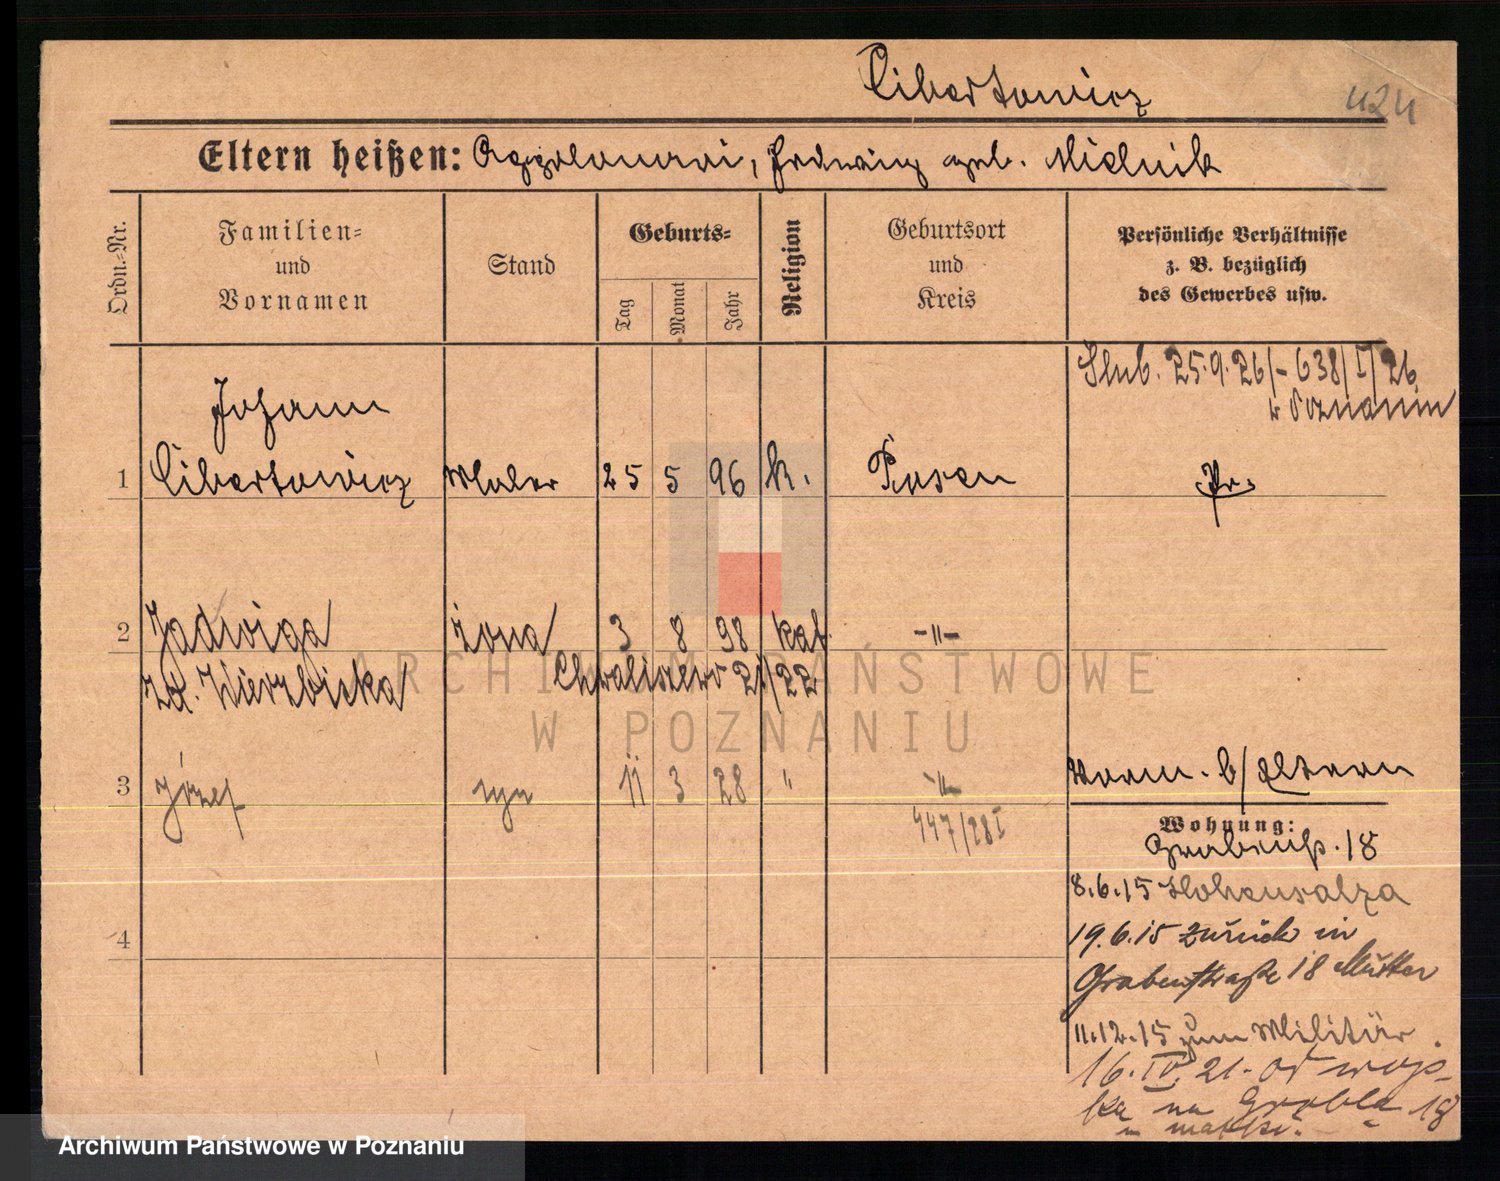 Cibertowicz
424
Eltern heißen: Appolonari, Hedwig geb. Mielnik
Ordn.-Nr.
Familien-
und
Vornamen
Stand
Geburts-
Tag
Monat
Jahr
Religion
Geburtsort
und
Kreis
Persönliche Verhältnisse
z. B. bezüglich
des Gewerbes usw.
Slub. 25.9.26/- 638/I/26
w Poznaniu
Johann
1 Cibertowicz Maler 25 5 96 k. Posen Pr.
2 Jadwiga żona 3 8 98 kat. -"-
zd. Wierzbicka Chwaliszewo 21/22
3 Józef syn 11 3 28 " -"-
447/28I
Vorm. b/Eltern
Wohnung:
Grabenstr. 18
8.6.15 Hohensalza
19.6.15 zurück in
Grabenstraße 18 Mutter
11.12.15 zum Militär.
16.IV.21. od wojs-
ka na Grobla 18
u matki.
4
ARCHIWUM PAŃSTWOWE
W POZNANIU
Archiwum Państwowe w Poznaniu